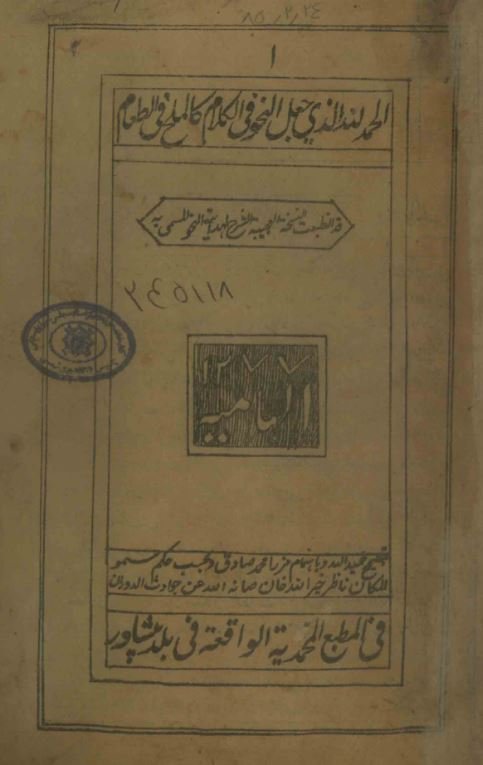 ٨٥٫٢٫٢٤
٢
١
الحمد لله الذي جعل النحو في الكلام كالملح في الطعام
قد انطبعت النسخة العجيبة الشرح لهداية النحو المسمى به
٢٤٥١١٨
١٢٧٧
الهامية
عبيد الله وباهتمام مرزا محمد صادق وبحسب حكم سمو
المكان ناظر خير الله خان صانه الله عن حوادث الدوران
في المطبع المحمدية الواقعة في بلد پشاور